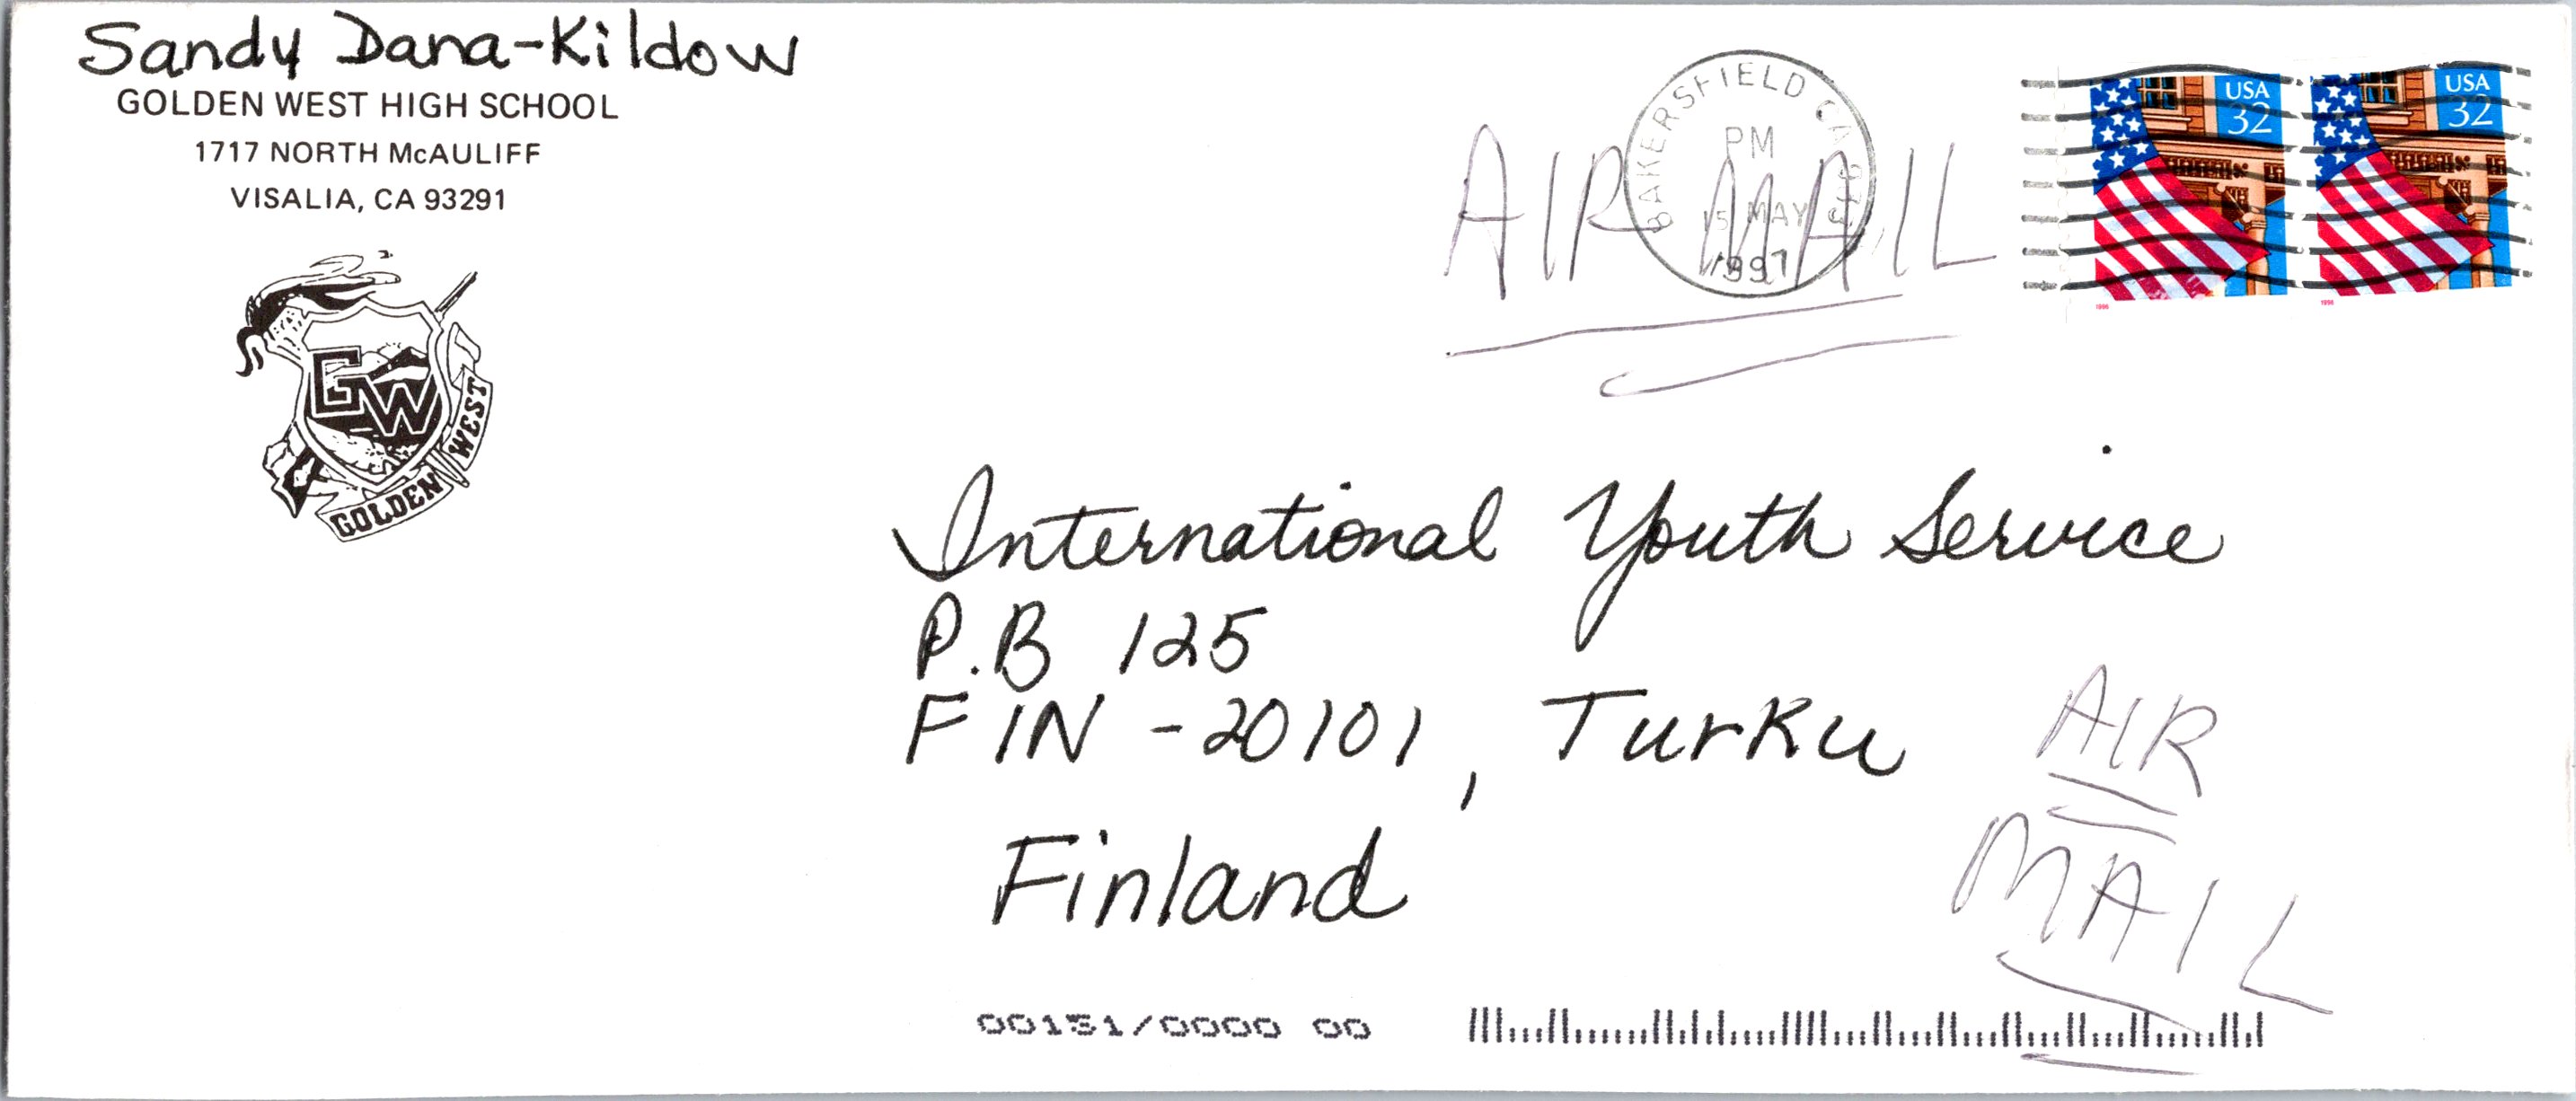 Sandy Dana-Kildow
GOLDEN WEST HIGH SCHOOL
1717 NORTH McAULIFF
VISALIA, CA 93291
GW
GOLDEN WEST
BAKERSFIELD CA
PM
15 MAY
1997
AIR MAIL
USA
32
USA
32
1996
1996
International Youth Service
P.B 125
FIN - 20101, Turku
Finland
AIR
MAIL
00131/0000 00